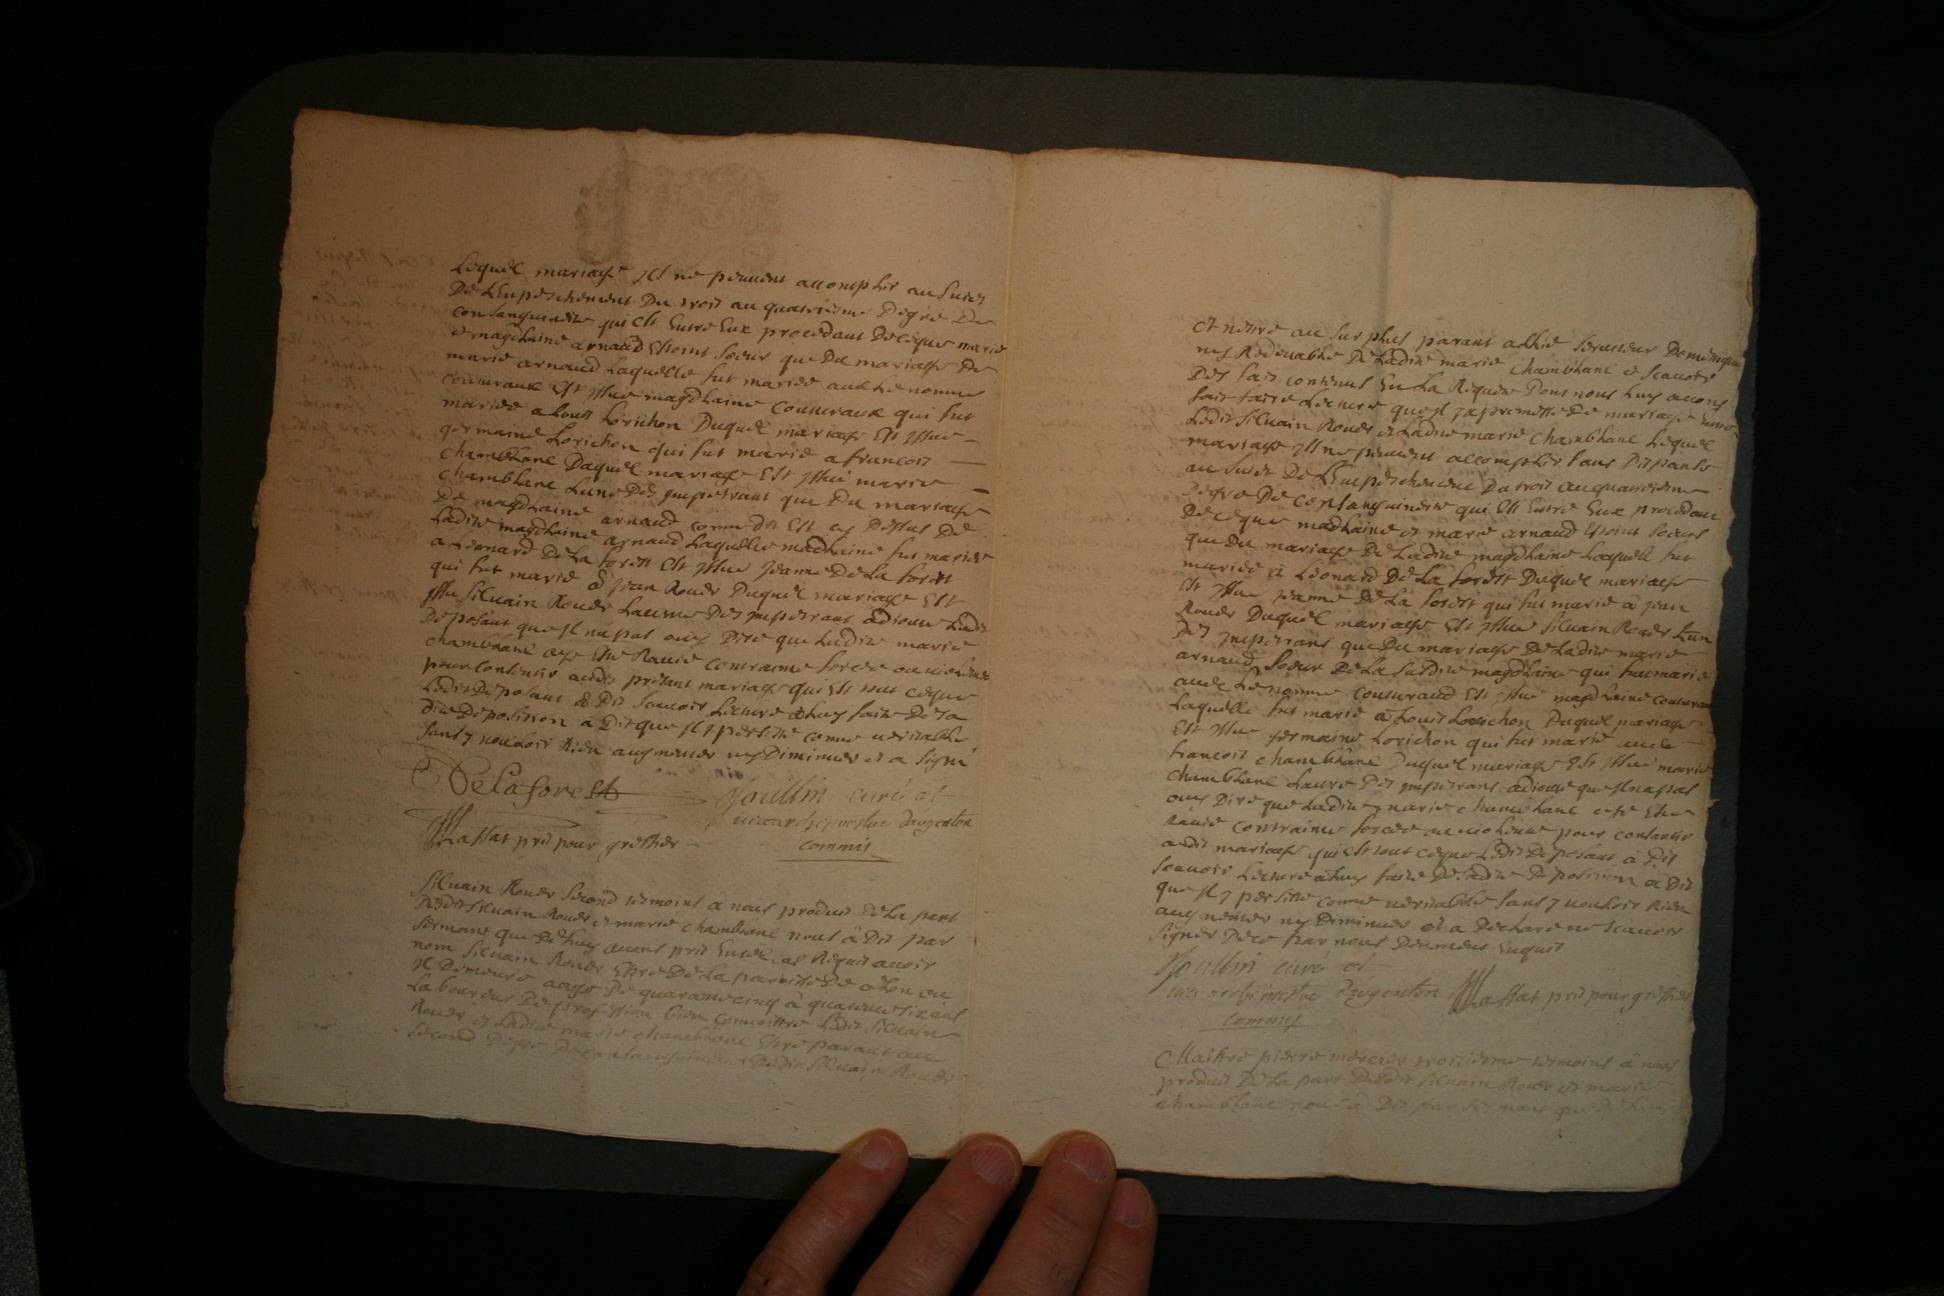 Lequel mariage Ils ne peuvent accomplir au sujet
De L'enpeschement Du trois au quatriesme Degré De
consanguinite qui est Entre Eux procedant De ce que marie
et magdlaine arnaud Estoint soeur que Du mariage De
marie arnaud Laquelle fut mariee avec Le nomme
couturaux Est Issue magdlaine couturaux qui fut
mariee a Louis Lorichon Duquel mariage Est Issue
germaine Lorichon qui fut marie a francois
chamblane Duquel mariage Est Issue marie
chamblane L'une Des Impetrant que Du mariage
De magdlaine arnaud comme dit Est cy Dessus De
Ladite magdlaine arnaud Laquelle madlaine fut mariee
a Leonard De La forest Est Issue Jeanne De La forest
qui fut marie à Jean Rouer Duquel mariage Est
Issu Silvain Rouer L'autre Des Impetrant adjoute Ledit
Deposant que Il na pas ouy Dire que Ladite marie
chamblane aye Esté Ravie contrainte forcee ou violentee
pour contenir audit pretant mariage qui Est tout ce que
Ledit Deposant à Dit scavoir Lecture à Luy faite De sa
dite Deposition a Dit que Il y persiste comme veritable
sans y vouloir Rien augmenter ny Diminuer et a signé
Delaforest Joullin curé et
vicear archiprestre dargenton
Massat pris pour greffier commis
Silvain Rouer second tesmoins à nous produit De La part
Desdit Silvain Rouer et marie chamblane nous à Dit par
serment que De Luy avons pris En tel cas Requis avoir
nom Silvain Rouer Estre De La paroisse De ou
Il Demeure aagé De quarante cinq à quarante six ans
Laboureur De profession bien connoittre Ledit Silvain
Rouer et Ladite marie chamblane Estre parant au
second Degre De consanguinite Dudit Silvain Rouer
et nettre au surplus parant allié serviteur Domestique
ny Redevable De Ladite marie chamblane et scavoir
Des fait contenus En La Requete Dont nous Luy avons
fait faire Lecture que Il y a promesse De mariage Entre
Ledit Silvain Rouer et Ladite marie chamblane Lequel
mariage Ils ne peuvent accomplir sans Dispanse
au sujet De L'enpeschement Du trois au quatriesme
Degre De consanguinite qui Est Entre Eux procedant
De ce que madlaine et marie arnaud Estoint soeurs
que Du mariage De Ladite magdlaine Laquelle fut
mariee à Leonard De La forest Duquel mariage
Est Issue Jeanne De La forest qui fut marie à Jean
Rouer Duquel mariage Est Issu Silvain Rouer L'un
Des Impetrans que Du mariage De Ladite marie
arnaud soeur De La susdite magdlaine qui fut marie
avec Le nomme couturaud Est Issue magdlaine couturaud
Laquelle fut marie à Louis Lorichon Duquel mariage
Est Issue germaine Lorichon qui fut marie avec
francois chamblane Duquel mariage Est Issue marie
chamblane L'autre Des Impetrans adjoute que Il na pas
ouy Dire que Ladite marie chamblane aye Esté
Ravie contrainte forcee ou violentee pour contenir
audit mariage qui Est tout ce que Ledit Deposant à Dit
scavoir Lecture à Luy faite De sadite Deposition à Dit
que Il y persiste comme veritable sans y vouloir Rien
augmenter ny Diminuer et a Declaré ne scavoir
signer De ce par nous Deument Enquis
Joullin curé et
archiprestre dargenton Massat pris pour greffier
commis
Maistre pierre mercier troisiesme tesmoins à nous
produit De La part Desdit Silvain Rouer et marie
chamblane nous à Dit par serment que De Luy